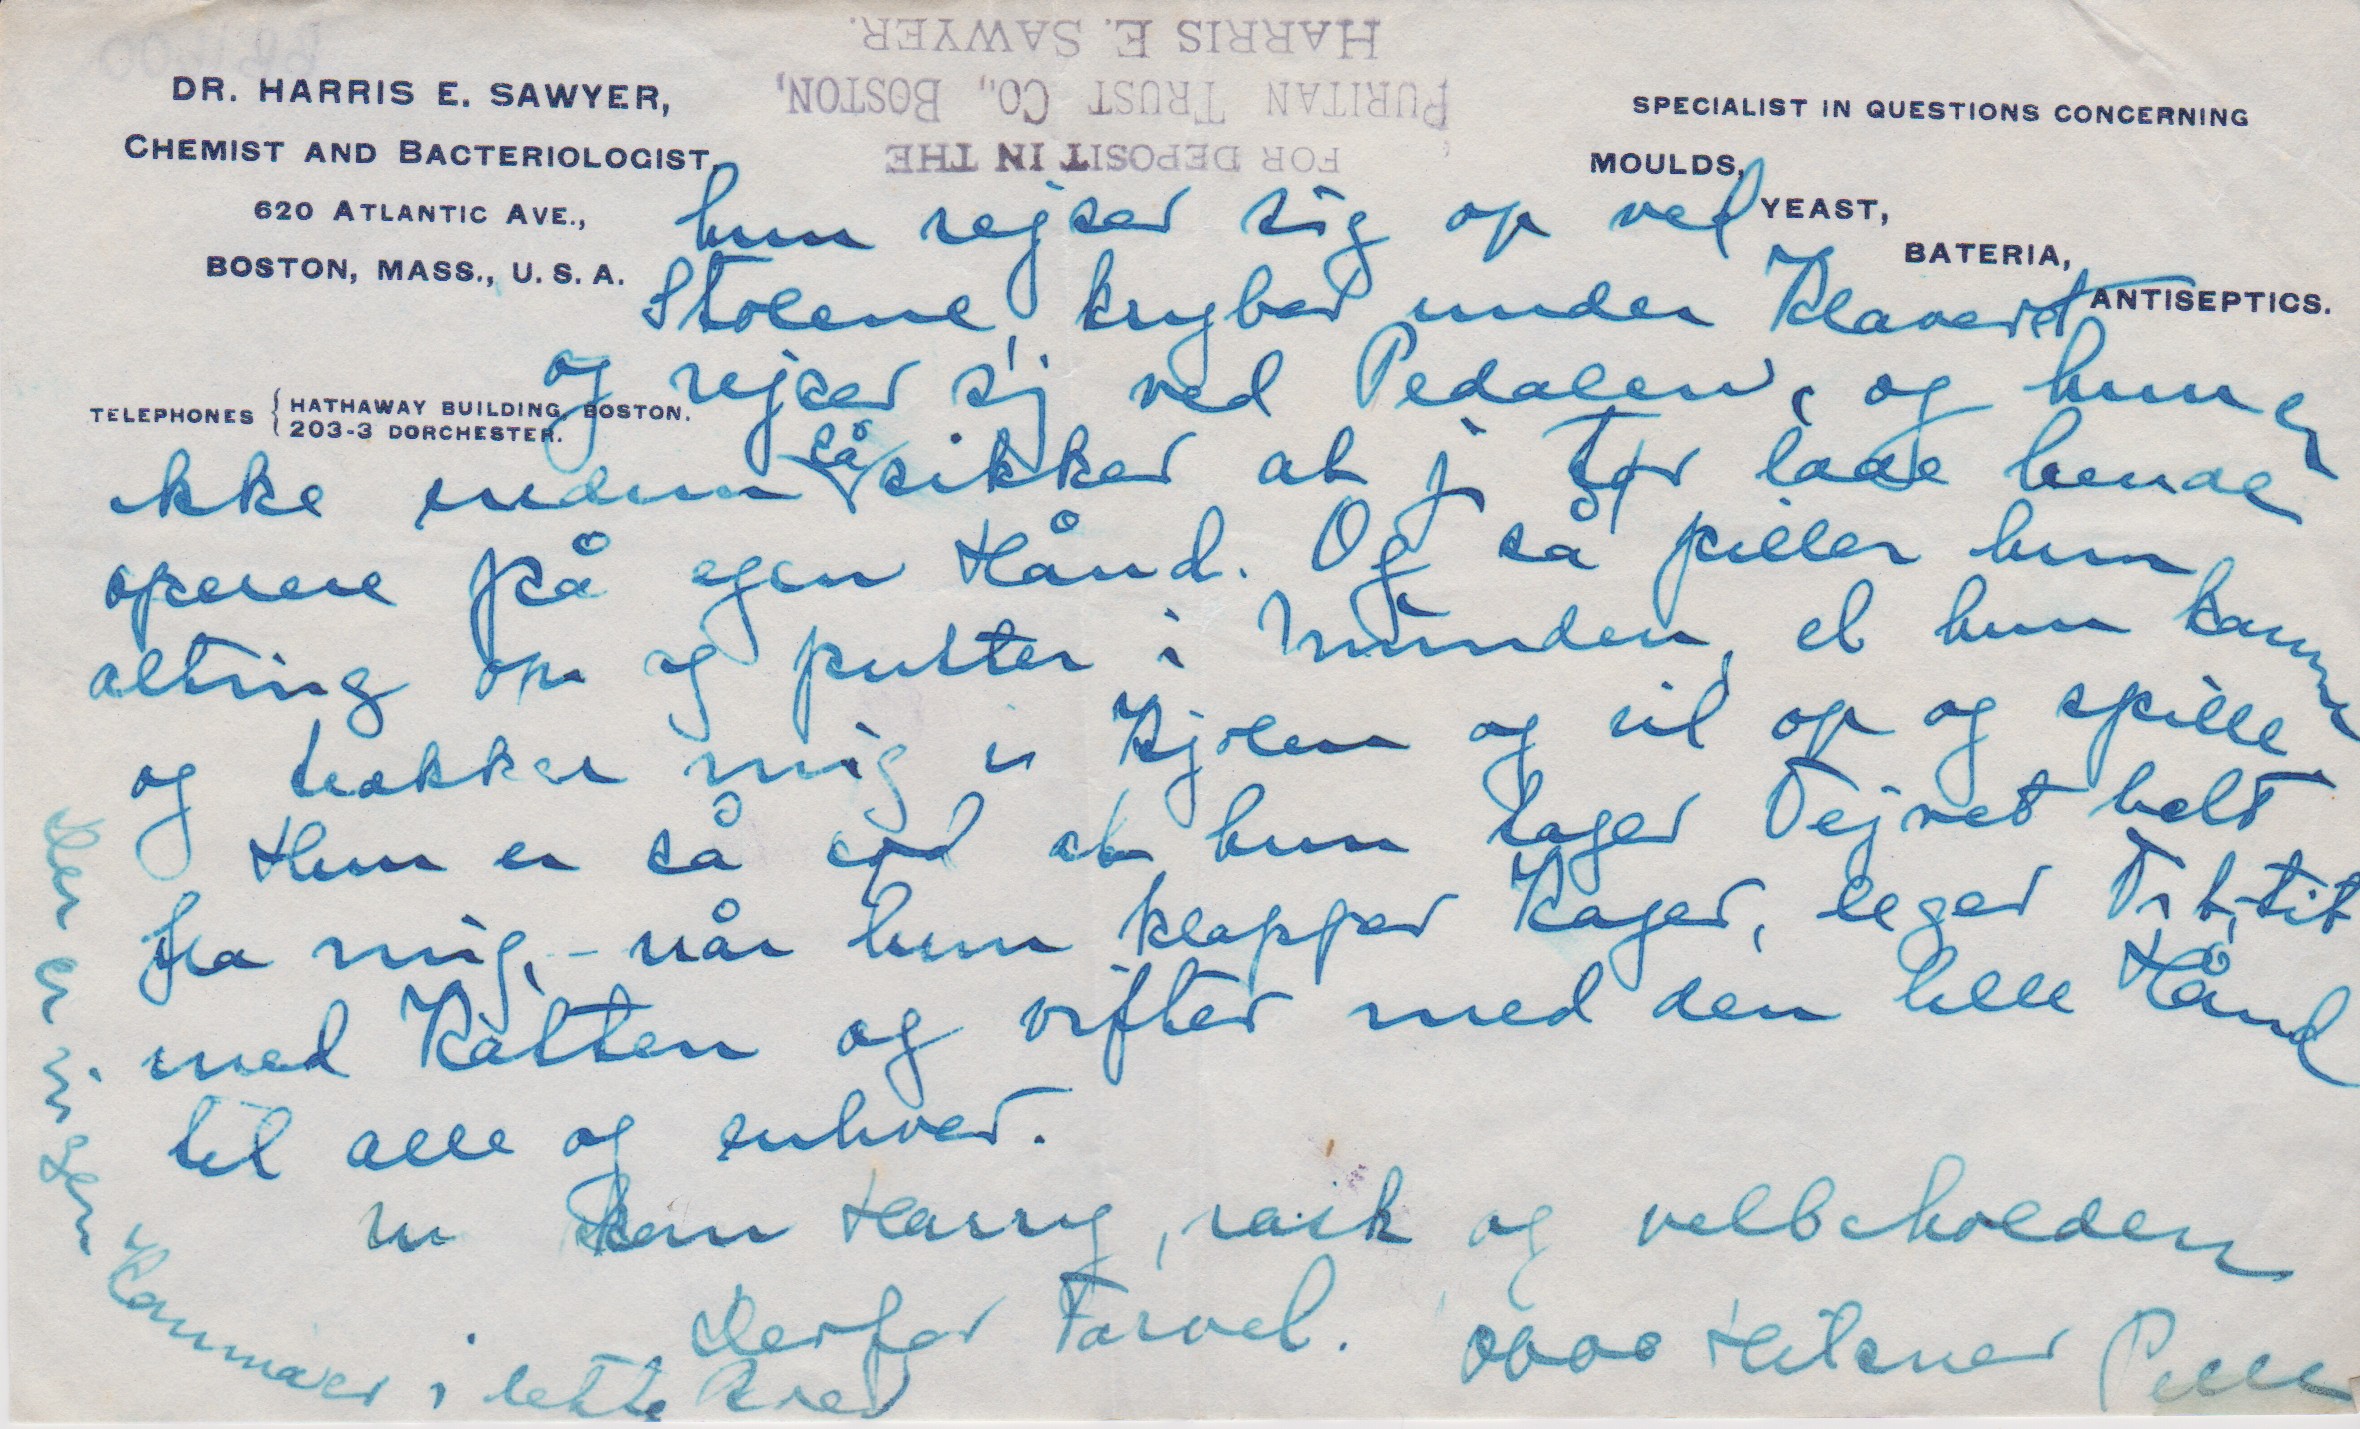 HARRIS E. SAWYER.
PURITAN TRUST CO., BOSTON,
FOR DEPOSIT IN THE
DR. HARRIS E. SAWYER,
CHEMIST AND BACTERIOLOGIST,
620 ATLANTIC AVE.,
BOSTON, MASS., U. S. A.
SPECIALIST IN QUESTIONS CONCERNING
MOULDS,
YEAST,
BATERIA,
ANTISEPTICS.
TELEPHONES { HATHAWAY BUILDING, BOSTON.
203-3 DORCHESTER.
hun rejser sig op ved
Stolene, kryber under Klaveret
og rejser sig ved Pedalen, og hun er
ikke endnu så sikker at j tør lade hende
operere på egen Hånd. Og så piller hun
alting om og putter i Munden, et hun kann
og trækker mig i Kjolen og vil op og spille
Hun er så sød at hun tager Vejret helt
fra mig, - når hun klapper Kager, leger Tit-tit
med Katten og vifter med den lille Hånd
til alle og enhver.
Nu kom Harry, rask og velbeholden
Derfor Farvel. 0000 Hilsner Pelle
Der er ingen
Kommaer i dette Brev